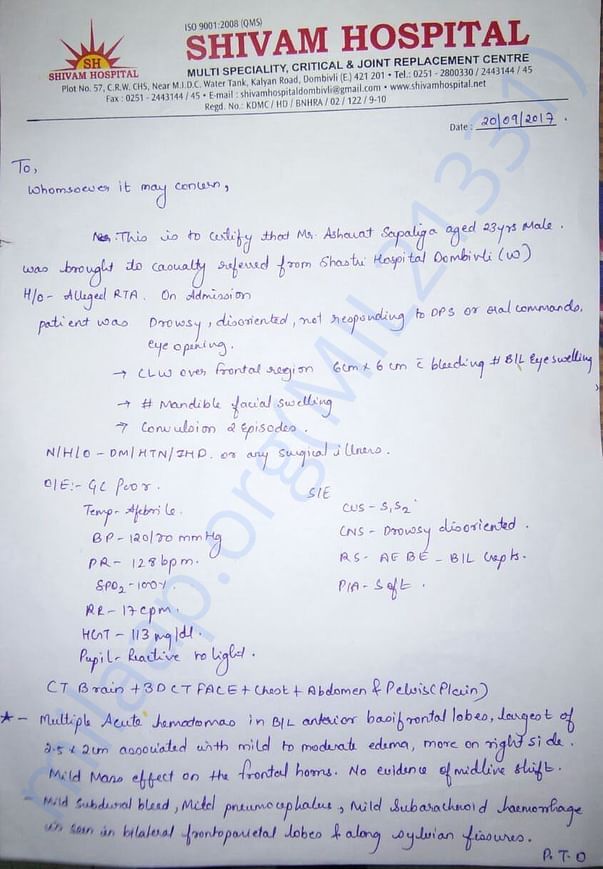 ISO 9001:2008 (QMS)
SHIVAM HOSPITAL
SH
SHIVAM HOSPITAL
MULTI SPECIALITY, CRITICAL & JOINT REPLACEMENT CENTRE
Plot No. 57, C.R.W. CHS, Near M.I.D.C. Water Tank, Kalyan Road, Dombivli (E.) 421 201 • Tel.: 0251 - 2800330 / 2443144 / 45
Fax : 0251 - 2443144 / 45 • E-mail : shivamhospitaldombivli@gmail.com • www.shivamhospital.net
Regd. No.: KDMC / HD / BNHRA / 02 / 122 / 9-10
Date : 20/09/2017.
To,
Whomsoever it may concern,
This is to certify that Mr. Ashavat Sapaliga aged 23yrs Male.
was brought to casualty referred from Shastri Hospital Dombivli (W)
H/o - Alleged RTA. On Admission
patient was Drowsy, disoriented, not responding to DPS or oral commands.
eye opening.
→ CLW over frontal region 6cm x 6 cm c̄ bleeding # B/L Eye swelling
→ # Mandible facial swelling
→ Convulsion 2 Episodes.
N/H/O - DM/HTN/IHD. or any surgical illness.
O/E:- GC Poor. S/E
Temp - Afebrile. CVS - S1S2
BP - 120/80 mmHg CNS - Drowsy disoriented.
PR - 128 bpm. RS - AEBE - B/L Crepts.
SPO2 - 100% P/A - Soft.
RR - 17 cpm.
HGT - 113 mg/dl.
Pupil - Reactive to light.
CT Brain + 3D CT FACE + Chest + Abdomen & Pelvis (Plain)
★ - Multiple Acute hematomas in B/L anterior basifrontal lobes, largest of
2.5 x 2cm associated with mild to moderate edema, more on right side.
Mild Mass effect on the frontal horns. No evidence of midline shift.
- Mild subdural bleed, Mild pneumocephalus, Mild Subarachnoid haemorrhage
is seen in bilateral frontoparietal lobes & along sylvian fissures.
P.T.O
milaap.org(MIL213331)